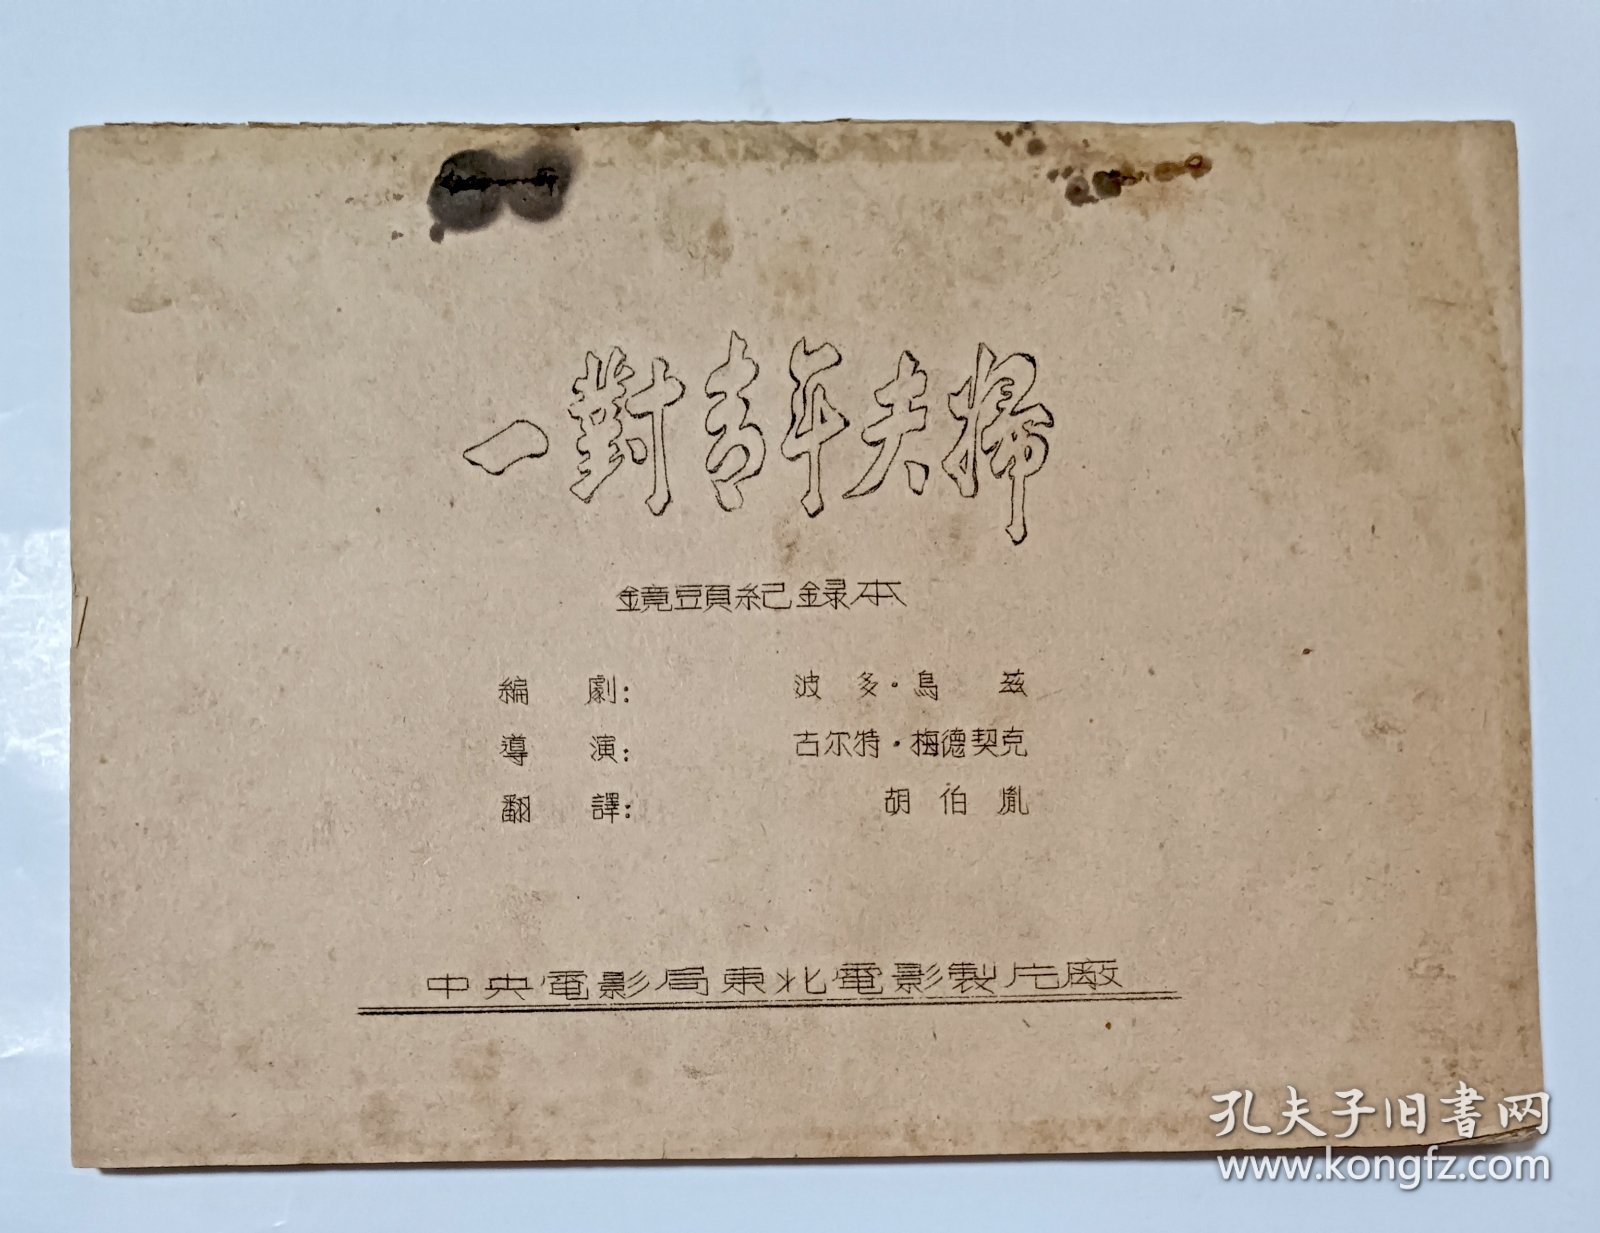 一對青年夫婦
鏡頭紀錄本
編劇: 波多·烏兹
導演: 古尔特·梅德契克
翻譯: 胡伯胤
中央電影局東北電影製片廠
孔夫子旧書网
www.kongfz.com